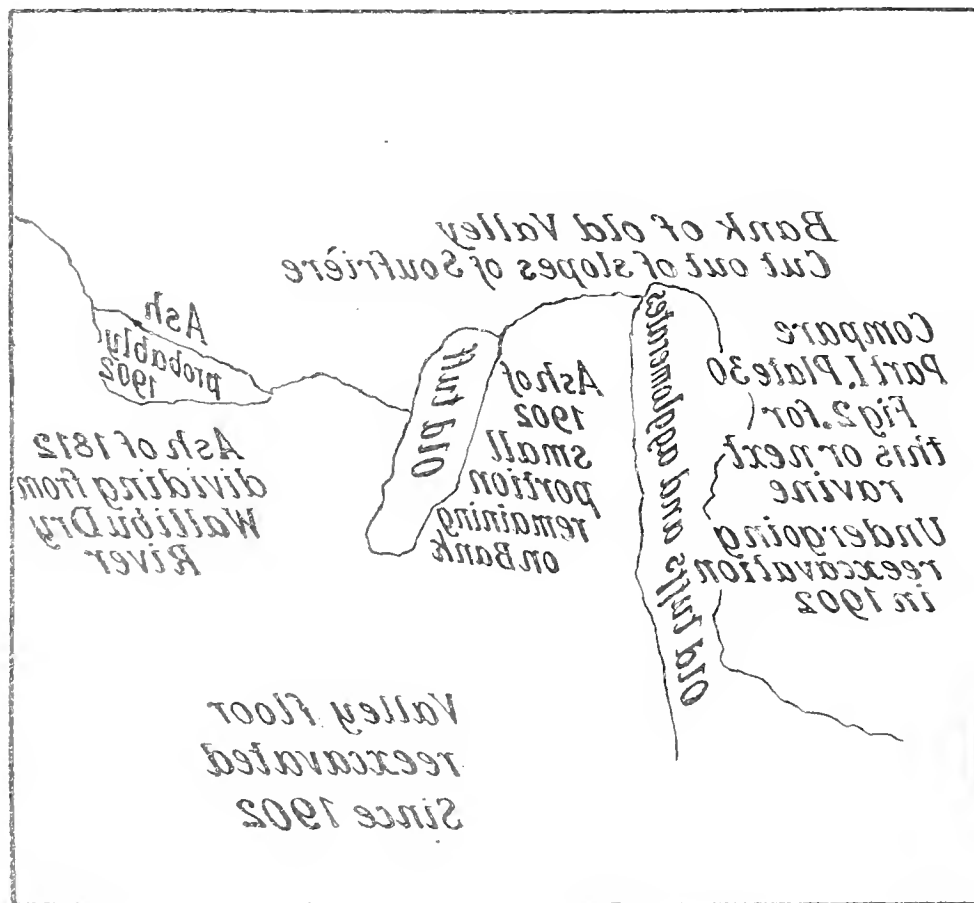 Bank of old Valley
Cut out of slopes of Soufrière
Compare
Part I. Plate 30
Fig 2. for
this or next
ravine
Undergoing
reexcavation
in 1902
Old tuffs and agglomerates
Ash of
1902
small
portion
remaining
on Bank
Old tuff
Ash
probably
1902
Ash of 1812
dividing from
Wallibu Dry
River
Valley floor
reexcavated
Since 1902